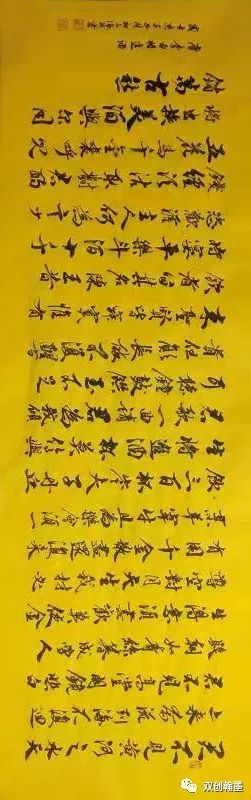 君不見黃河之水天
上來奔流到海不復迴
君不見高堂明鏡悲白
髮朝如青絲暮成雪人
生得意須盡歡莫使金
樽空對月天生我材必
有用千金散盡還復來
烹羊宰牛且為樂會須一
飲三百杯岑夫子丹丘
生將進酒杯莫停與
君歌一曲請君為我傾
耳聽鐘鼓饌玉不足
貴但願長醉不復醒
古來聖賢皆寂寞惟有
飲者留其名陳王昔
時宴平樂斗酒十千
恣歡謔主人何為言少
錢徑須沽取對君酌
五花馬千金裘呼兒
將出換美酒與爾同
銷萬古愁
唐李白將進酒
双创翰墨